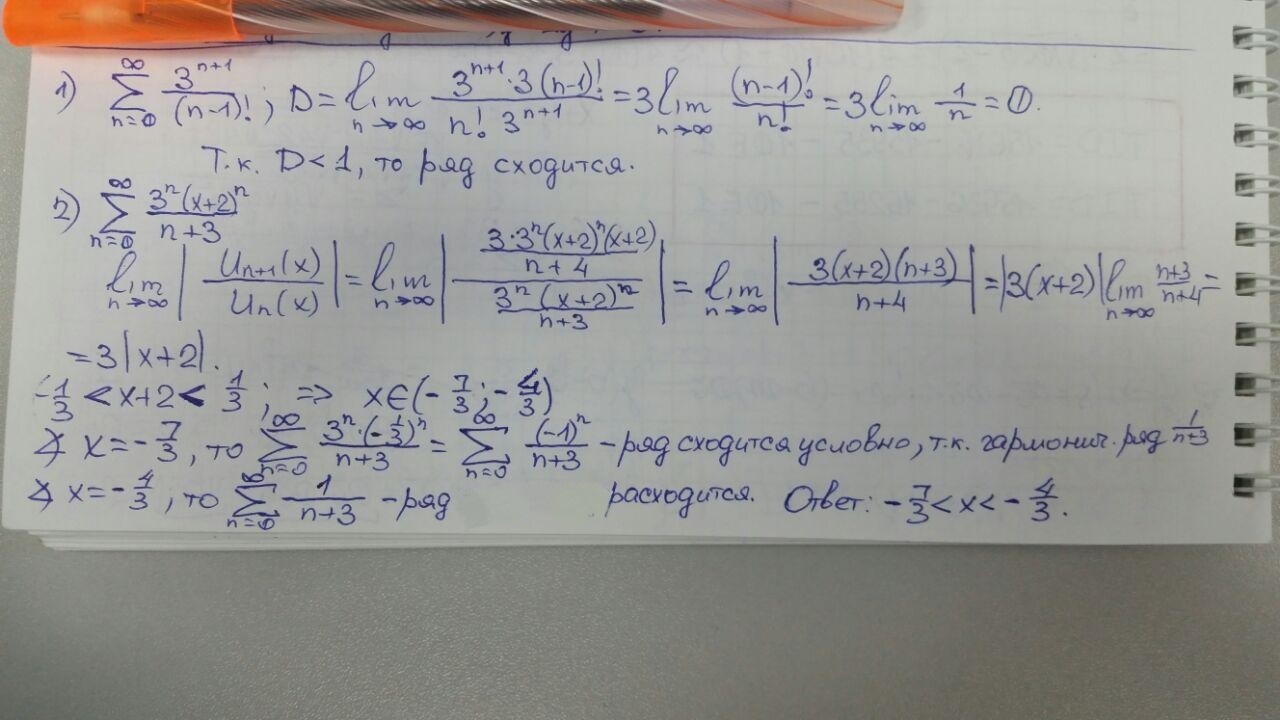 1) ∑_{n=0}^{∞} 3^{n+1}/(n-1)! ; D = lim_{n→∞} (3^{n+1}·3(n-1)!)/(n! 3^{n+1}) = 3 lim_{n→∞} (n-1)!/n! = 3 lim_{n→∞} 1/n = 0.
Т.к. D < 1, то ряд сходится.
2) ∑_{n=0}^{∞} 3^n(x+2)^n/(n+3)
lim_{n→∞} |U_{n+1}(x)/U_n(x)| = lim_{n→∞} |(3·3^n(x+2)^n(x+2)/(n+4))/(3^n(x+2)^n/(n+3))| = lim_{n→∞} |3(x+2)(n+3)/(n+4)| = |3(x+2)| lim_{n→∞} (n+3)/(n+4) =
= 3|x+2|.
-1/3 < x+2 < 1/3 ; ⇒ x∈(-7/3 ; -4/3)
∑_{n=0}^{∞} 3^n·(-1/3)^n/(n+3) = ∑_{n=0}^{∞} (-1)^n/(n+3) - ряд сходится условно, т.к. гармонич. ряд 1/(n+3)
x = -4/3, то ∑_{n=0}^{∞} 1/(n+3) - ряд расходится. Ответ: -7/3 < x < -4/3.